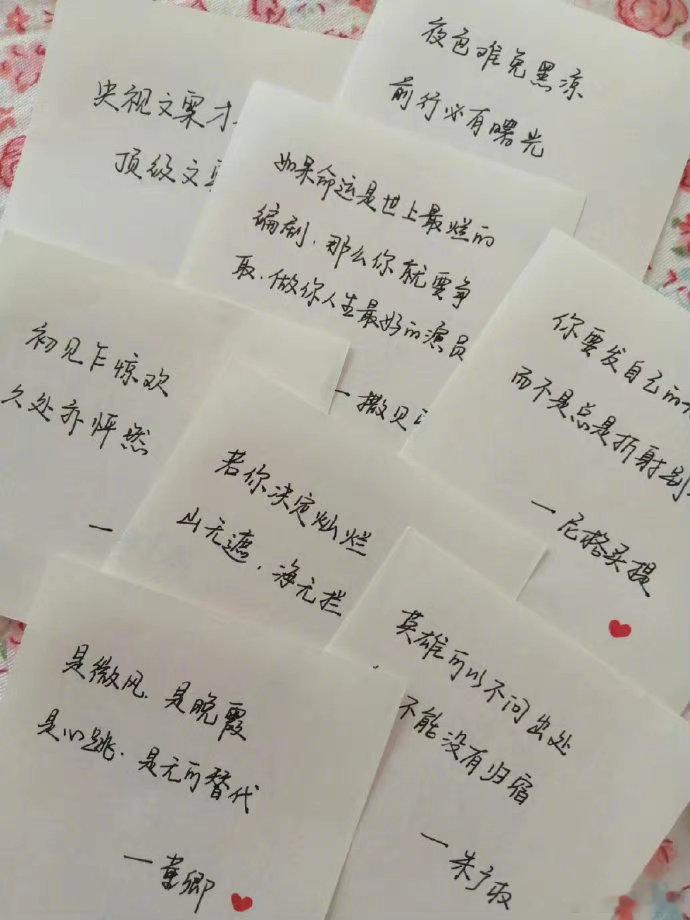 央视文案才
顶级文
夜色难免黑凉
前行必有曙光
如果命运是世上最烂的
编剧,那么你就要争
取,做你人生最好的演员
一撒贝
你要发自己的
而不是总是折射别
一尼格买提
初见乍惊欢
久处亦怦然
一
若你决定灿烂
山无遮,海无拦
英雄可以不问出处
不能没有归宿
一朱广权
是微风,是晚霞
是心跳,是无可替代
一董卿